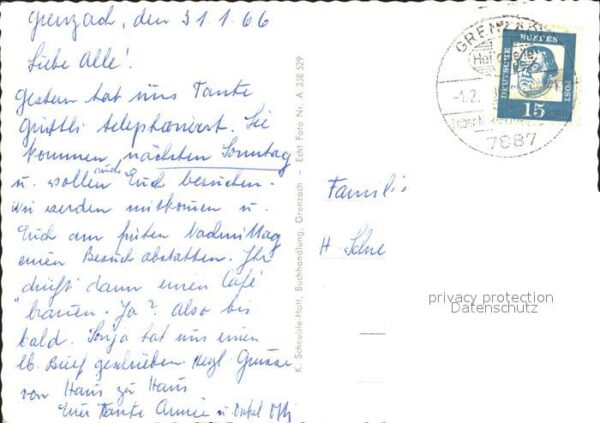 Grenzach, den 31.1.66
Liebe Alle!
Gestern hat uns Tante
telephoniert. Sie
kommen nächsten Sonntag
u. wollen auch Euch besuchen.
Wir werden mitkommen u.
Euch am frühen Nachmittag
einen Besuch abstatten. Ihr
dürft dann einen Café
"brauen". Ja? Also bis
bald. Sonja hat uns einen
lb. Brief geschrieben. Herzl. Grüsse
von Haus zu Haus
Eure Tante Annie u. Onkel
K. Scheuble-Hott, Buchhandlung, Grenzach – Echt Foto Nr. A 338 529
GRENZACH
-1.2.
7887
DEUTSCHE BUNDESPOST
15
Familie
H.
privacy protection
Datenschutz